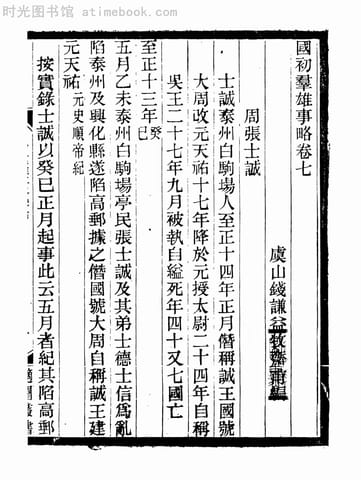 时光图书馆 atimebook.com
國初羣雄事略卷七
虞山錢謙益牧齋甫編
周張士誠
士誠泰州白駒場人至正十四年正月僭稱誠王國號
大周改元天祐十七年降於元授太尉二十四年自稱
吳王二十七年九月被執自縊死年四十又七國亡
至正十三年癸巳
五月乙未泰州白駒場亭民張士誠及其弟士德士信爲亂
陷泰州及興化縣遂陷高郵據之僭國號大周自稱誠王建
元天祐元史順帝紀
按實錄士誠以癸巳正月起事此云五月者紀其陷高郵
適園叢書
时光图书馆 atimebook.com